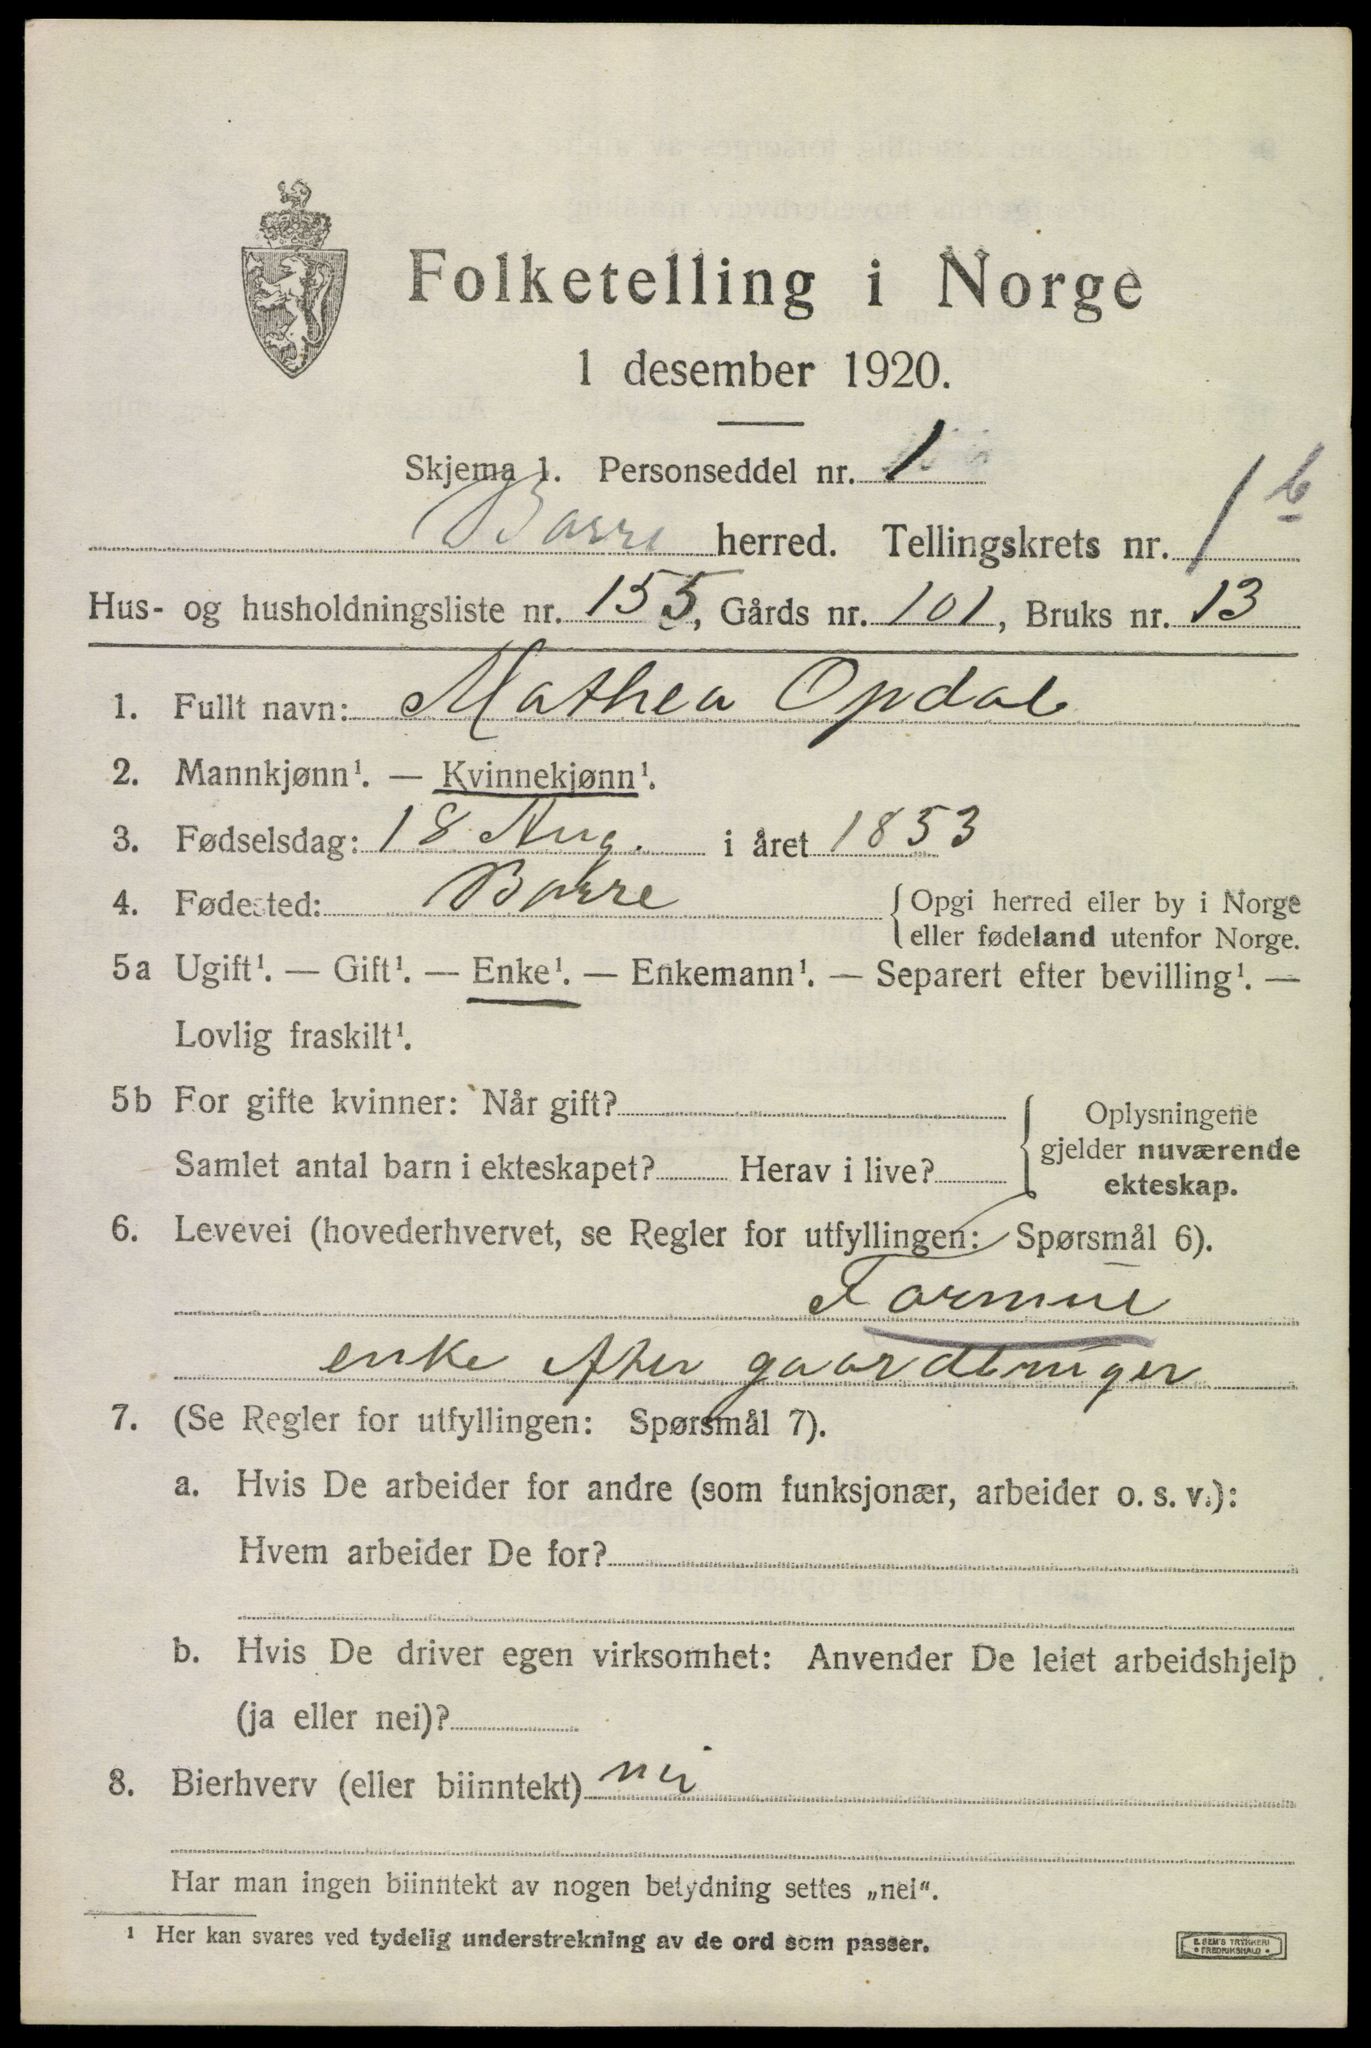 Folketelling i Norge
1 desember 1920.
Skjema 1. Personseddel nr. 1
Borre herred. Tellingskrets nr. 1 b
Hus- og husholdningsliste nr. 155, Gårds nr. 101, Bruks nr. 13
1. Fullt navn: Mathea Opdal
2. Mannkjønn¹. — Kvinnekjønn¹.
3. Fødselsdag: 18 Aug. i året 1853
4. Fødested: Borre { Opgi herred eller by i Norge
eller fødeland utenfor Norge.
5a Ugift¹. — Gift¹. — Enke¹. — Enkemann¹. — Separert efter bevilling¹. —
Lovlig fraskilt¹.
5b For gifte kvinner: Når gift? Oplysningene
Samlet antal barn i ekteskapet? Herav i live? gjelder nuværende
ekteskap.
6. Levevei (hovederhvervet, se Regler for utfyllingen: Spørsmål 6).
Formue
enke efter gaardbruger
7. (Se Regler for utfyllingen: Spørsmål 7).
a. Hvis De arbeider for andre (som funksjonær, arbeider o. s. v.):
Hvem arbeider De for?
b. Hvis De driver egen virksomhet: Anvender De leiet arbeidshjelp
(ja eller nei)?
8. Bierhverv (eller biinntekt) nei
Har man ingen biinntekt av nogen betydning settes „nei“.
¹ Her kan svares ved tydelig understrekning av de ord som passer.
E. SEM'S TRYKKERI
• FREDRIKSHALD •